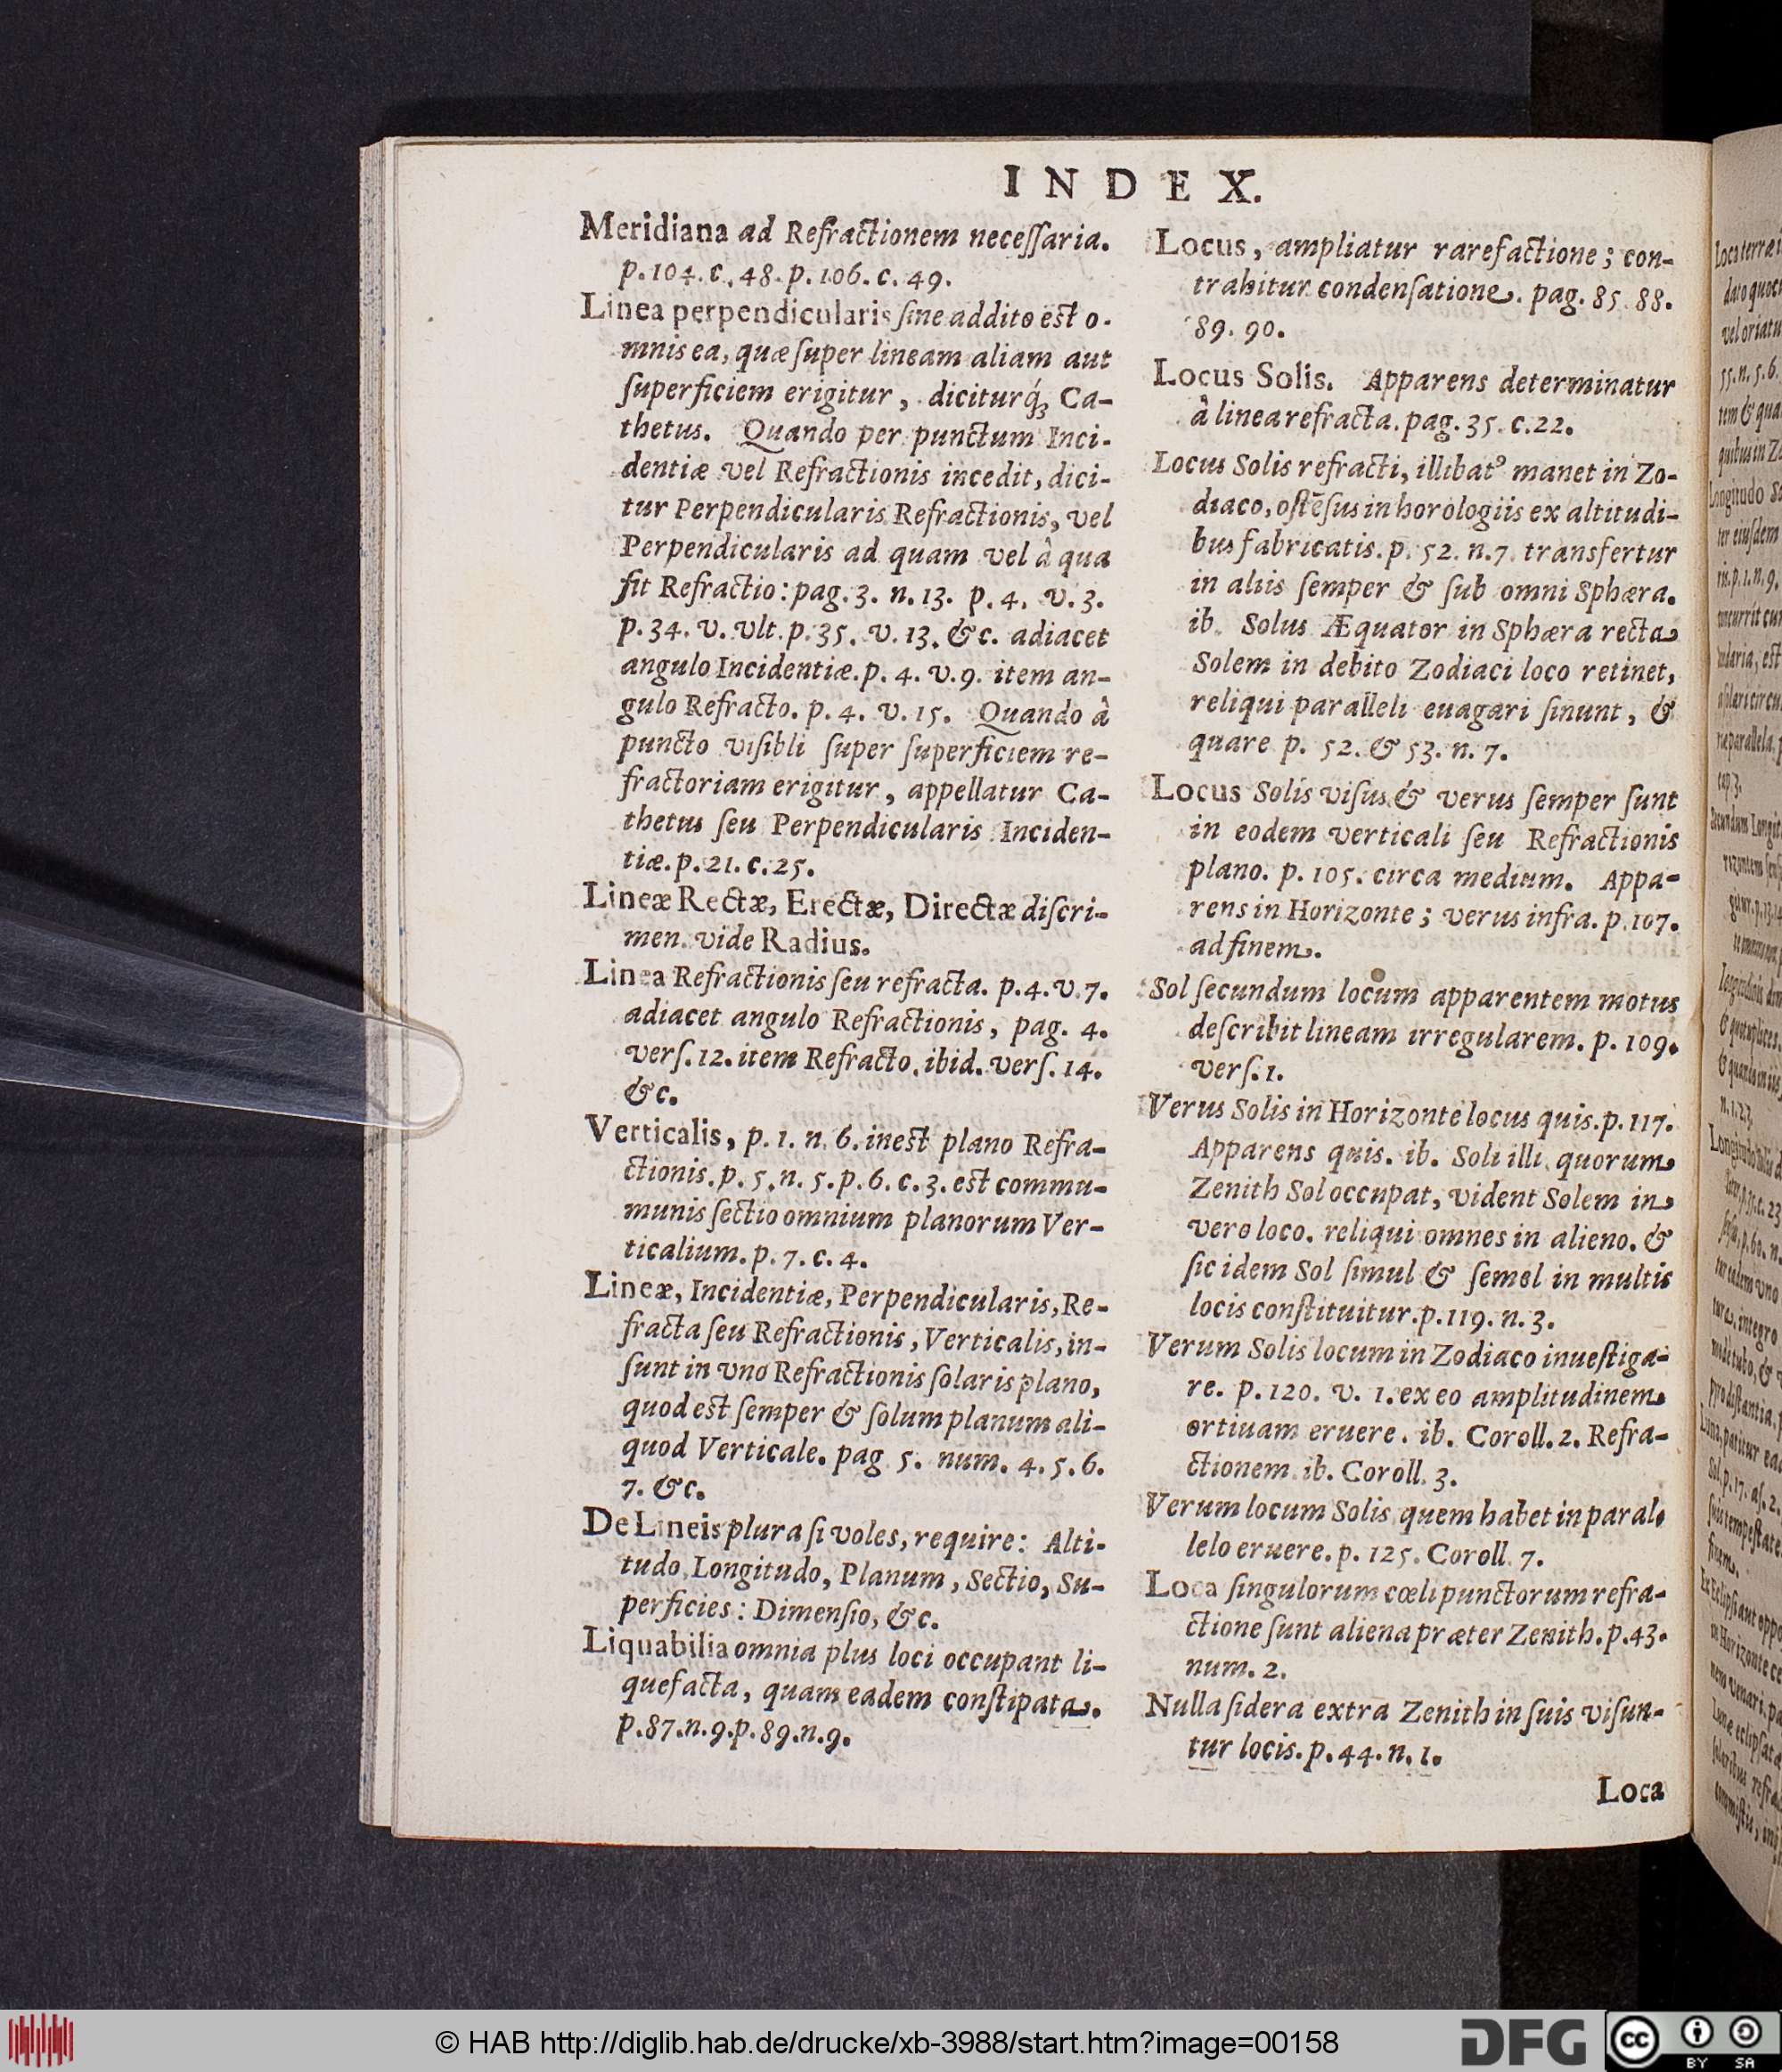 INDEX.
Meridiana ad Refractionem neceſſaria.
p. 104. c. 48. p. 106. c. 49.
Linea perpendicularis ſine addito eſt o-
mnis ea, quæ ſuper lineam aliam aut
ſuperficiem erigitur, diciturq́ꝫ Ca-
thetus. Quando per punctum Inci-
dentiæ vel Refractionis incedit, dici-
tur Perpendicularis Refractionis, vel
Perpendicularis ad quam vel à qua
fit Refractio: pag. 3. n. 13. p. 4. v. 3.
p. 34. v. vlt. p. 35. v. 13. &c. adiacet
angulo Incidentiæ. p. 4. v. 9. item an-
gulo Refracto. p. 4. v. 15. Quando à
puncto viſibli ſuper ſuperficiem re-
fractoriam erigitur, appellatur Ca-
thetus ſeu Perpendicularis Inciden-
tiæ. p. 21. c. 25.
Lineæ Rectæ, Erectæ, Directæ diſcri-
men. vide Radius.
Linea Refractionis ſeu refracta. p. 4. v. 7.
adiacet angulo Refractionis, pag. 4.
verſ. 12. item Refracto. ibid. verſ. 14.
&c.
Verticalis, p. 1. n. 6. ineſt plano Refra-
ctionis. p. 5. n. 5. p. 6. c. 3. eſt commu-
munis ſectio omnium planorum Ver-
ticalium. p. 7. c. 4.
Lineæ, Incidentiæ, Perpendicularis, Re-
fracta ſeu Refractionis, Verticalis, in-
ſunt in vno Refractionis ſolaris plano,
quod eſt ſemper & ſolum planum ali-
quod Verticale. pag. 5. num. 4. 5. 6.
7. &c.
De Lineis plura ſi voles, require: Alti-
tudo, Longitudo, Planum, Sectio, Su-
perficies: Dimenſio, &c.
Liquabilia omnia plus loci occupant li-
quefacta, quam eadem conſtipata.
p. 87. n. 9. p. 89. n. 9.
Locus, ampliatur rarefactione; con-
trahitur condenſatione. pag. 85. 88.
89. 90.
Locus Solis. Apparens determinatur
à linea refracta. pag. 35. c. 22.
Locus Solis refracti, illibatꝰ manet in Zo-
diaco, oſtēſus in horologiis ex altitudi-
bus fabricatis. p. 52. n. 7. transfertur
in aliis ſemper & ſub omni Sphæra.
ib. Solus Æquator in Sphæra recta
Solem in debito Zodiaci loco retinet,
reliqui paralleli euagari ſinunt, &
quare p. 52. & 53. n. 7.
Locus Solis viſus & verus ſemper ſunt
in eodem verticali ſeu Refractionis
plano. p. 105. circa medium. Appa-
rens in Horizonte; verus infra. p. 107.
ad finem.
Sol ſecundum locum apparentem motus
deſcribit lineam irregularem. p. 109.
verſ. 1.
Verus Solis in Horizonte locus quis. p. 117.
Apparens quis. ib. Soli illi quorum
Zenith Sol occupat, vident Solem in
vero loco. reliqui omnes in alieno. &
ſic idem Sol ſimul & ſemel in multis
locis conſtituitur. p. 119. n. 3.
Verum Solis locum in Zodiaco inueſtiga-
re. p. 120. v. 1. ex eo amplitudinem
ortiuam eruere. ib. Coroll. 2. Refra-
ctionem. ib. Coroll. 3.
Verum locum Solis quem habet in paral-
lelo eruere. p. 125. Coroll. 7.
Loca ſingulorum cœli punctorum refra-
ctione ſunt aliena præter Zenith. p. 43.
num. 2.
Nulla ſidera extra Zenith in ſuis viſun-
tur locis. p. 44. n. 1.
Loca
© HAB http://diglib.hab.de/drucke/xb-3988/start.htm?image=00158
DFG
cc BY SA